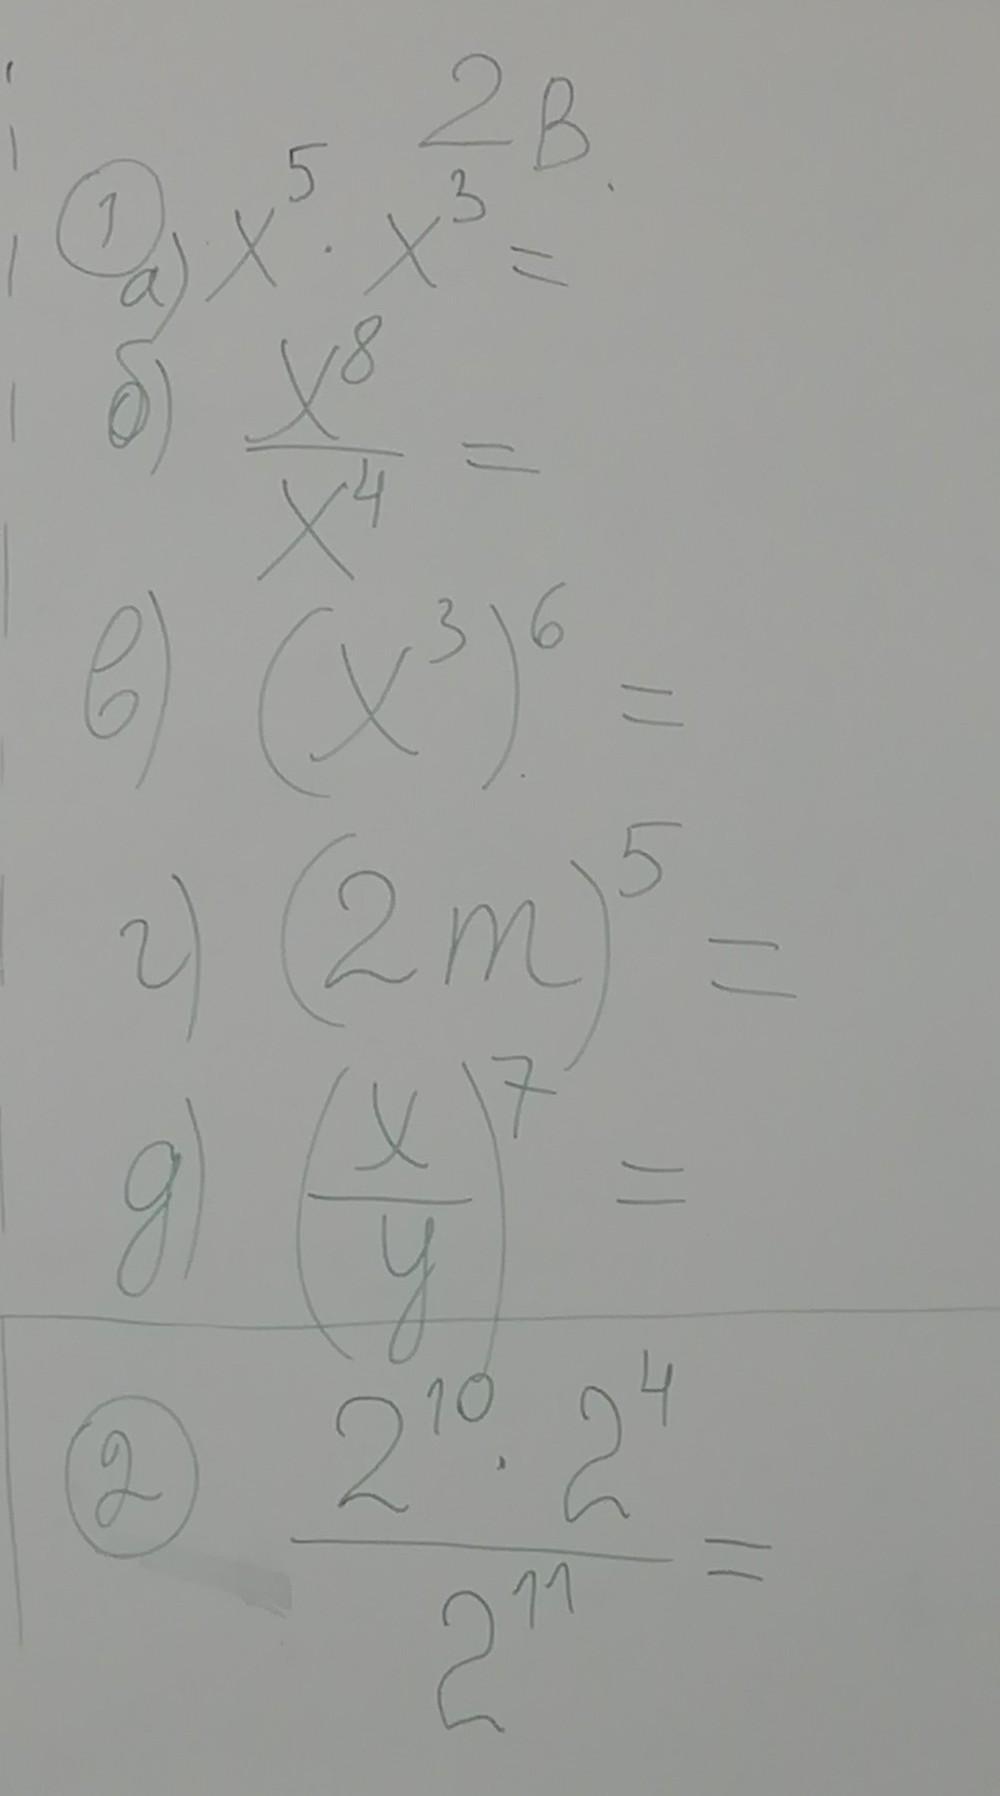 2 В.
① а) x⁵ · x³ =
б) x⁸/x⁴ =
в) (x³)⁶ =
г) (2m)⁵ =
д) (x/y)⁷ =
② 2¹⁰ · 2⁴ / 2¹¹ =